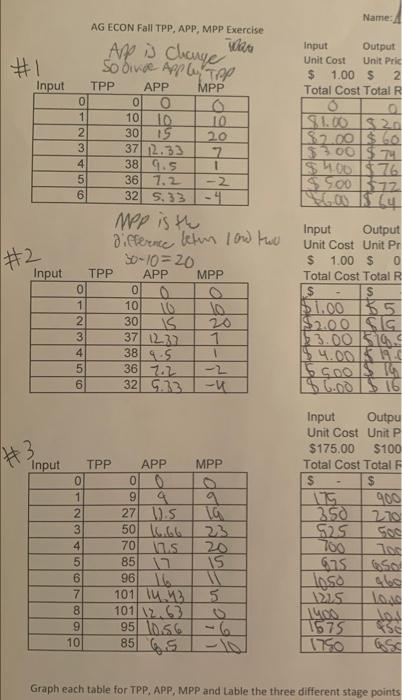 Name:
AG ECON Fall TPP, APP, MPP Exercise
APP is Change
So Divide APP by TPP
#1
Input Output
Unit Cost Unit Pric
$ 1.00 $ 2
Input TPP APP MPP Total Cost Total R
0 0 0 0 0 0
1 10 10 10 $1.00 $20
2 30 15 20 $2.00 $60
3 37 12.33 7 $3.00 $74
4 38 9.5 1 $4.00 $76
5 36 7.2 -2 $5.00 $72
6 32 5.33 -4 $6.00 $64
MPP is the
difference betwn 1 and two
30-10=20
#2
Input Output
Unit Cost Unit Pr
$ 1.00 $ 0
Input TPP APP MPP Total Cost Total R
0 0 0 0 $ - $
1 10 10 10 $1.00 $5
2 30 15 20 $2.00 $15
3 37 12.33 7 $3.00 $18.5
4 38 9.5 1 $4.00 $19.0
5 36 7.2 -2 $500 $18
6 32 5.33 -4 $6.00 $16
#3
Input Outpu
Unit Cost Unit P
$175.00 $100
Input TPP APP MPP Total Cost Total F
0 0 0 0 $ - $
1 9 9 9 175 900
2 27 13.5 18 350 270
3 50 16.66 23 525 500
4 70 17.5 20 700 700
5 85 17 15 875 850
6 96 16 11 1050 960
7 101 14.43 5 1225 1010
8 101 12.63 0 1400 101
9 95 10.56 -6 1575 950
10 85 8.5 -10 1750 850
Graph each table for TPP, APP, MPP and Lable the three different stage points